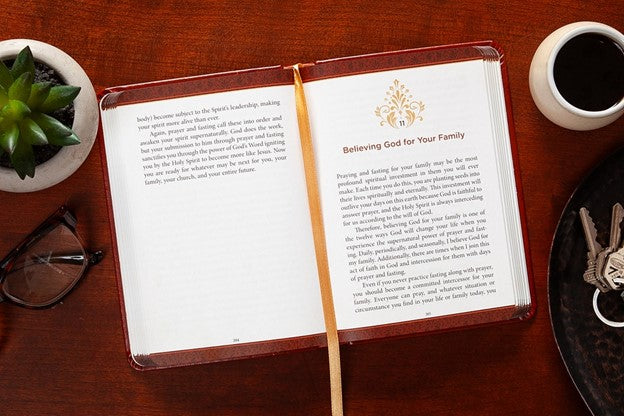 body) become subject to the Spirit's leadership, making
your spirit more alive than ever.
Again, prayer and fasting call these into order and
awaken your spirit supernaturally. God does the work,
but your submission to him through prayer and fasting
sanctifies you through the power of God's Word igniting
you by the Holy Spirit to become more like Jesus. Now
you are ready for whatever may be next for you, your
family, your church, and your entire future.
11
Believing God for Your Family
Praying and fasting for your family may be the most
profound spiritual investment in them you will ever
make. Each time you do this, you are planting seeds into
their lives spiritually and eternally. This investment will
outlive your days on this earth because God is faithful to
answer prayer, and the Holy Spirit is always interceding
for us according to the will of God.
Therefore, believing God for your family is one of
the twelve ways God will change your life when you
experience the supernatural power of prayer and fast-
ing. Daily, periodically, and seasonally, I believe God for
my family. Additionally, there are times when I join this
act of faith in God and intercession for them with days
of prayer and fasting.
Even if you never practice fasting along with prayer,
you should become a committed intercessor for your
family. Everyone can pray, and whatever situation or
circumstance you find in your life or family today, you